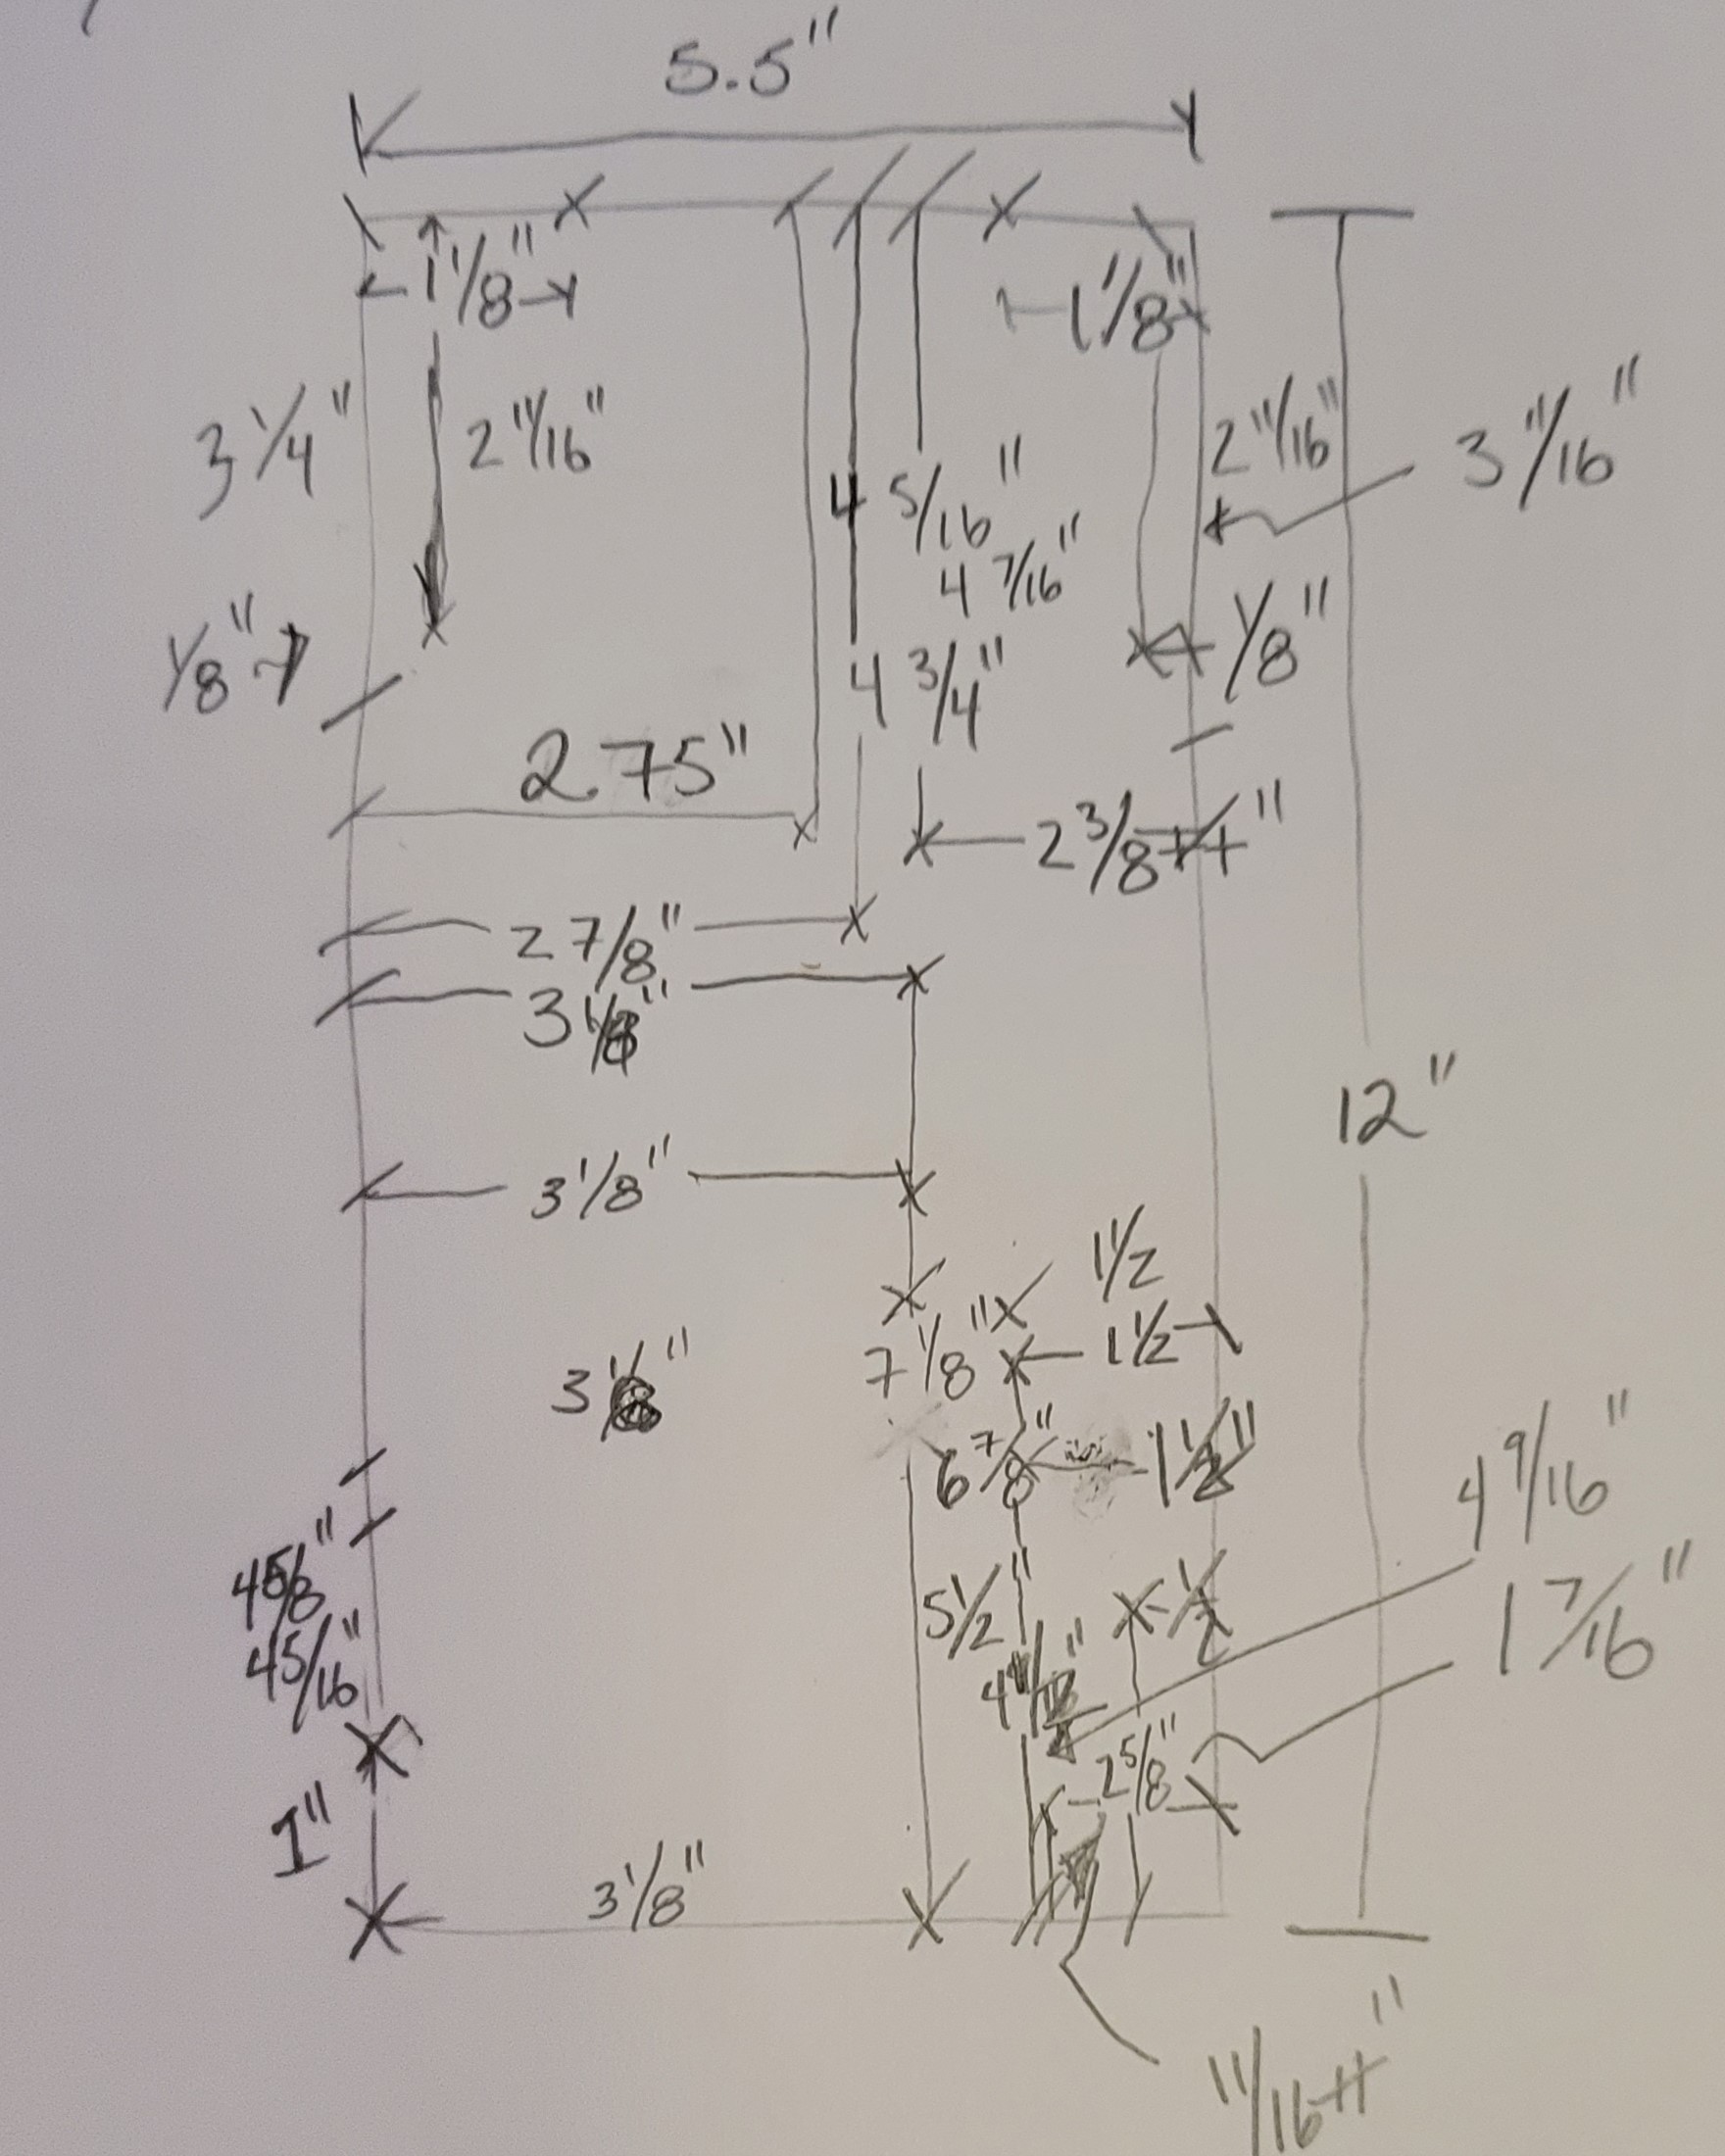 5.5"
1 1/8"
1 1/8"
3 1/4"
2 11/16"
2 11/16"
3 11/16"
4 5/16"
4 7/16"
1/8"
1/8"
4 3/4"
2.75"
2 3/8"
2 7/8"
3 1/8"
12"
3 1/8"
1 1/2
1 1/2
7 1/8"
3 1/8"
6 7/8"
1 1/2"
4 9/16"
4 5/8"
5 1/2"
1/2
1 7/16"
4 5/16"
2 5/8"
1"
3 1/8"
11/16"